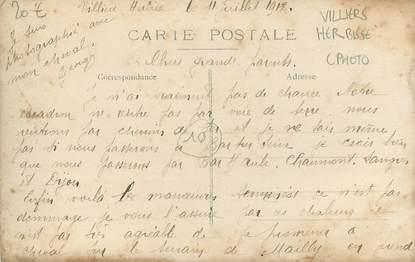 20€
Villiers Herbisse le 11 Juillet 1912.
VILLIERS
HERBISSE
CPHOTO
Je suis
photographié avec
mon cheval.
CARTE POSTALE
Chers grands parents.
Correspondance
Adresse
Je n'ai vraiment pas de chance Notre
escadron ne rentre pas par voie de terre nous
rentrons par chemin de fer et je ne sais même
pas si nous passerons à Bar sur Seine je crois bien
que nous passerons par Bar s/ Aube, Chaumont. Langres
et Dijon
10
Enfin voilà les manœuvres terminées ce n'est pas
dommage je vous l'assure par ces chaleurs ce
n'est pas très agréable de se promener à
cheval sur le terrain de Mailly on rend